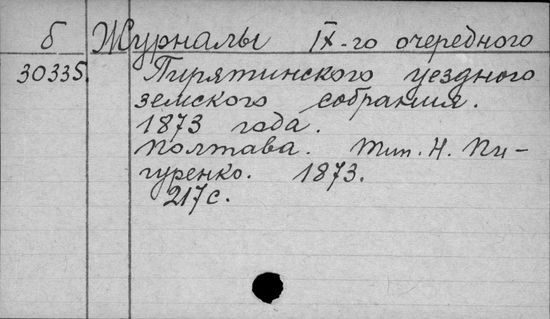 б Журналы IX-го очередного
30335. Пирятинского уездного
земского собрания.
1873 года.
Полтава. Тип. Н. Пи-
гуренко. 1873.
217 с.